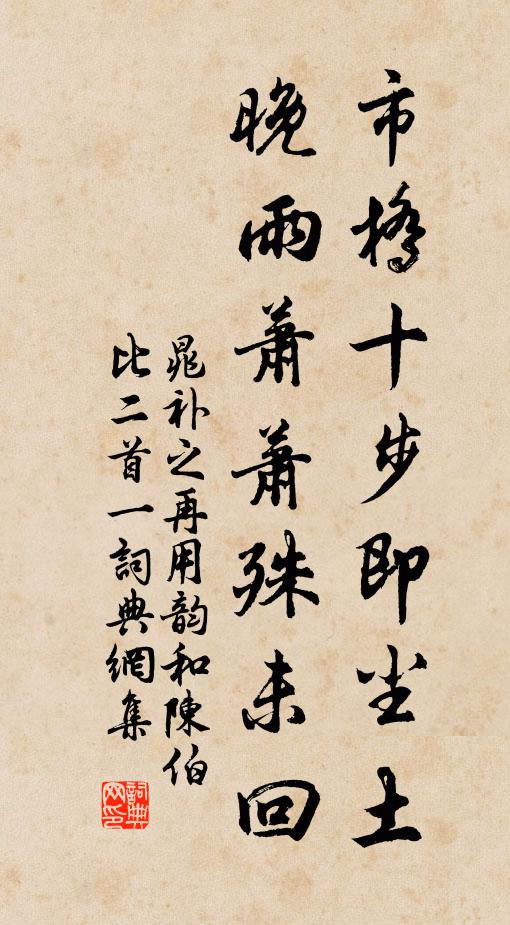 市橋十步即尘土
晚雨蕭蕭殊未回
晁补之再用韵和陳伯
比二首一詞典網集
詞典网印